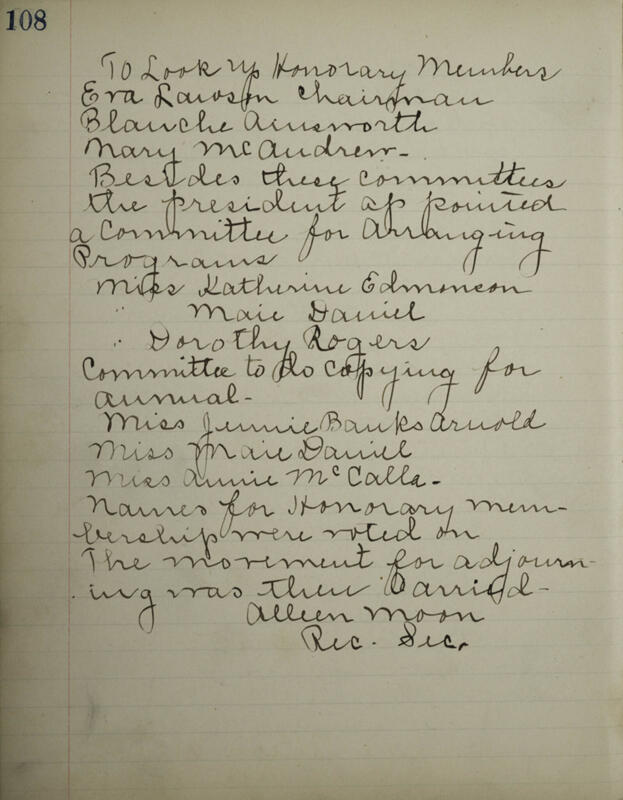 108
To Look up Honorary Members
Eva Lawson Chairman
Blanche Ainsworth
Mary McAndrew-
Besides these committees
the president appointed
a committee for arranging
Programs
Miss Katherine Edmonson
" Maie Daniel
" Dorothy Rogers
Committee to do copying for
annual-
Miss Jennie Banks Arnold
Miss Maie Daniel
Miss Annie McCalla-
Names for Honorary mem-
bership were voted on
The movement for adjourn-
ing was then carried-
Alleen Moon
Rec. Sec.